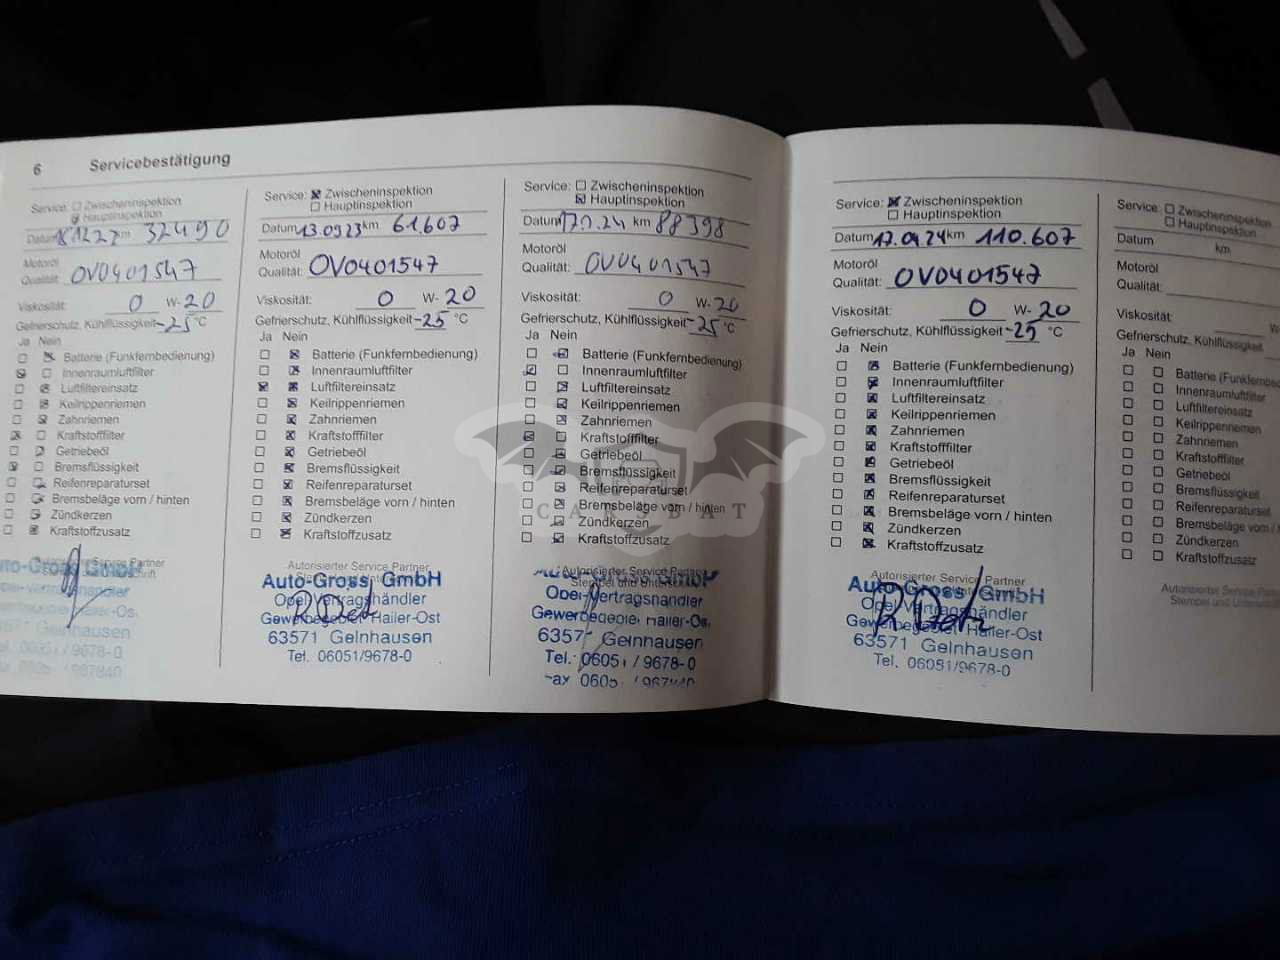 6 Servicebestätigung
Service: Zwischeninspektion
Hauptinspektion
Datum km 32490
Motoröl
Qualität: OV0401547
Viskosität: 0 W-20
Gefrierschutz, Kühlflüssigkeit -25 °C
Ja Nein
Batterie (Funkfernbedienung)
Innenraumluftfilter
Luftfiltereinsatz
Keilrippenriemen
Zahnriemen
Kraftstofffilter
Getriebeöl
Bremsflüssigkeit
Reifenreparaturset
Bremsbeläge vorn / hinten
Zündkerzen
Kraftstoffzusatz
Autorisierter Service Partner
Service: Zwischeninspektion
Hauptinspektion
Datum 13.09.23 km 61.607
Motoröl
Qualität: OV0401547
Viskosität: 0 W-20
Gefrierschutz, Kühlflüssigkeit -25 °C
Ja Nein
Batterie (Funkfernbedienung)
Innenraumluftfilter
Luftfiltereinsatz
Keilrippenriemen
Zahnriemen
Kraftstofffilter
Getriebeöl
Bremsflüssigkeit
Reifenreparaturset
Bremsbeläge vorn / hinten
Zündkerzen
Kraftstoffzusatz
Autorisierter Service Partner
Auto-Gross GmbH
Opel-Vertragshändler
Gewerbegebiet Hailer-Ost
63571 Gelnhausen
Tel. 06051/9678-0
Service: Zwischeninspektion
Hauptinspektion
Datum km 88398
Motoröl
Qualität: OV0401547
Viskosität: 0 W-20
Gefrierschutz, Kühlflüssigkeit -25 °C
Ja Nein
Batterie (Funkfernbedienung)
Innenraumluftfilter
Luftfiltereinsatz
Keilrippenriemen
Zahnriemen
Kraftstofffilter
Getriebeöl
Bremsflüssigkeit
Reifenreparaturset
Bremsbeläge vorn / hinten
Zündkerzen
Kraftstoffzusatz
Autorisierter Service Partner
Stempel und Unterschrift
Opel-Vertragshändler
Gewerbegebiet Hailer-Os
6357 Gelnhausen
Tel. 06051/9678-0
Service: Zwischeninspektion
Hauptinspektion
Datum 17.09.24 km 110.607
Motoröl
Qualität: OV0401547
Viskosität: 0 W-20
Gefrierschutz, Kühlflüssigkeit -25 °C
Ja Nein
Batterie (Funkfernbedienung)
Innenraumluftfilter
Luftfiltereinsatz
Keilrippenriemen
Zahnriemen
Kraftstofffilter
Getriebeöl
Bremsflüssigkeit
Reifenreparaturset
Bremsbeläge vorn / hinten
Zündkerzen
Kraftstoffzusatz
Autorisierter Service Partner
Auto-Gross GmbH
Opel-Vertragshändler
Gewerbegebiet Hailer-Ost
63571 Gelnhausen
Tel. 06051/9678-0
Service: Zwischeninspektion
Hauptinspektion
Datum km
Motoröl
Qualität:
Viskosität:
Gefrierschutz, Kühlflüssigkeit
Ja Nein
Batterie (Funkfernbe
Innenraumluftfilter
Luftfiltereinsatz
Keilrippenriemen
Zahnriemen
Kraftstofffilter
Getriebeöl
Bremsflüssigkeit
Reifenreparaturset
Bremsbeläge vorn /
Zündkerzen
Kraftstoffzusatz
Autorisierter Service
Stempel und
CARSBAT